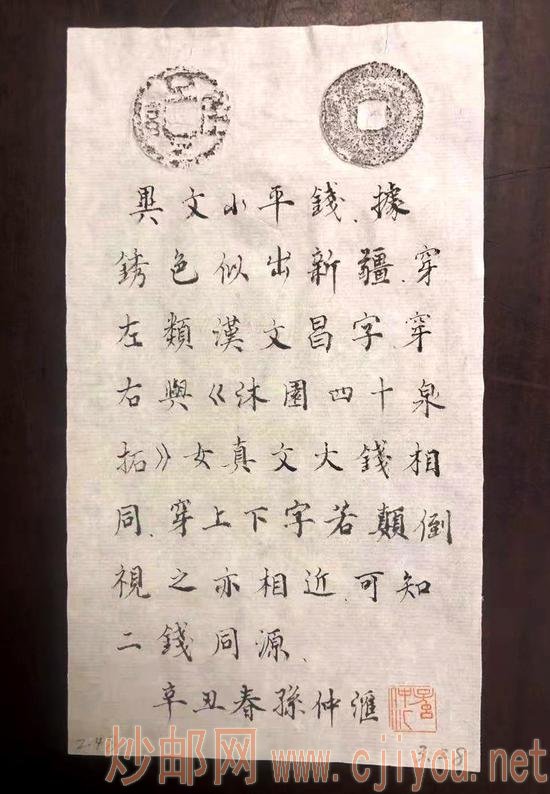 異文小平錢、據
銹色似出新疆、穿
左類漢文昌字、穿
右與《沐園四十泉
拓》女真文大錢相
同、穿上下字若顛倒
視之亦相近、可知
二錢同源、
辛丑春孫仲滙
炒邮网 www.cjiyou.net